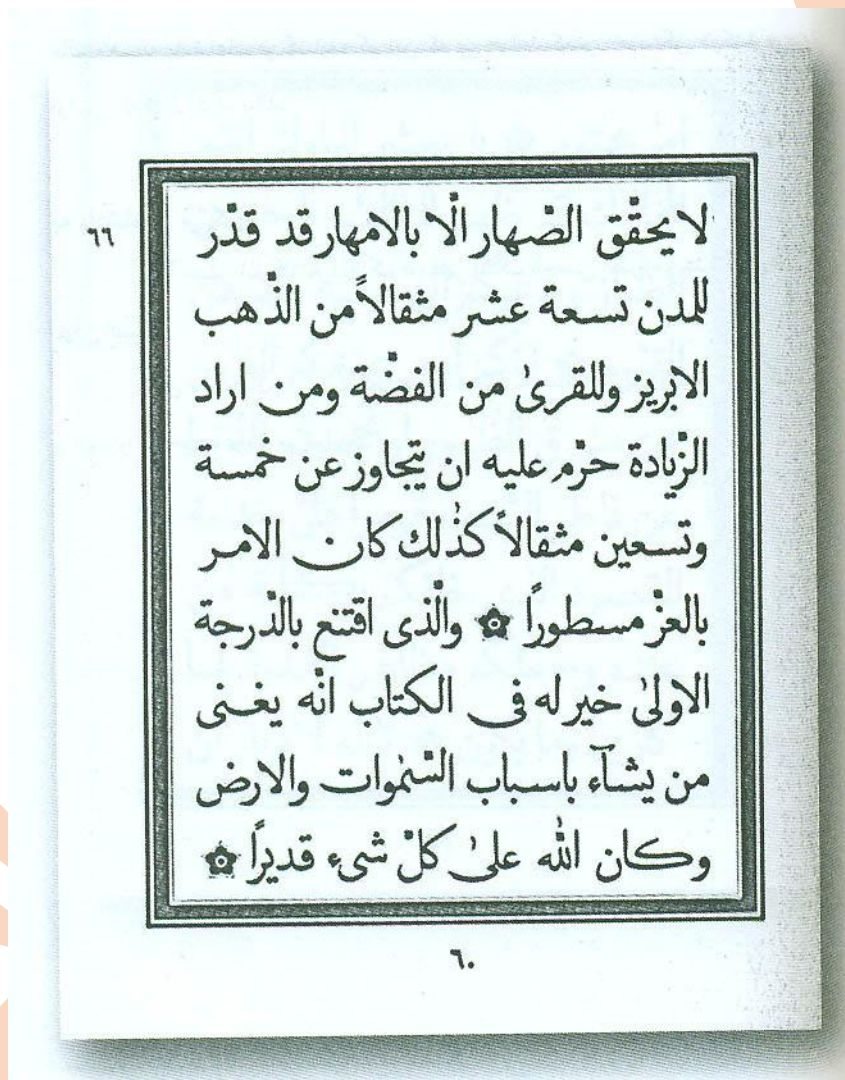 ٦٦
لا يحقّق الصّهار الّا بالامهار قد قدّر
للمدن تسعة عشر مثقالاً من الذّهب
الابريز وللقرىٰ من الفضّة ومن اراد
الزّيادة حرّم عليه ان يتجاوز عن خمسة
وتسعين مثقالاً كذٰلك كان الامر
بالعزّ مسطورًا ۞ والّذى اقتنع بالدّرجة
الاولىٰ خير له فى الكتاب انّه يغنى
من يشآء باسباب السّمٰوات والارض
وكان الله علىٰ كلّ شىء قديرًا ۞
٦٠